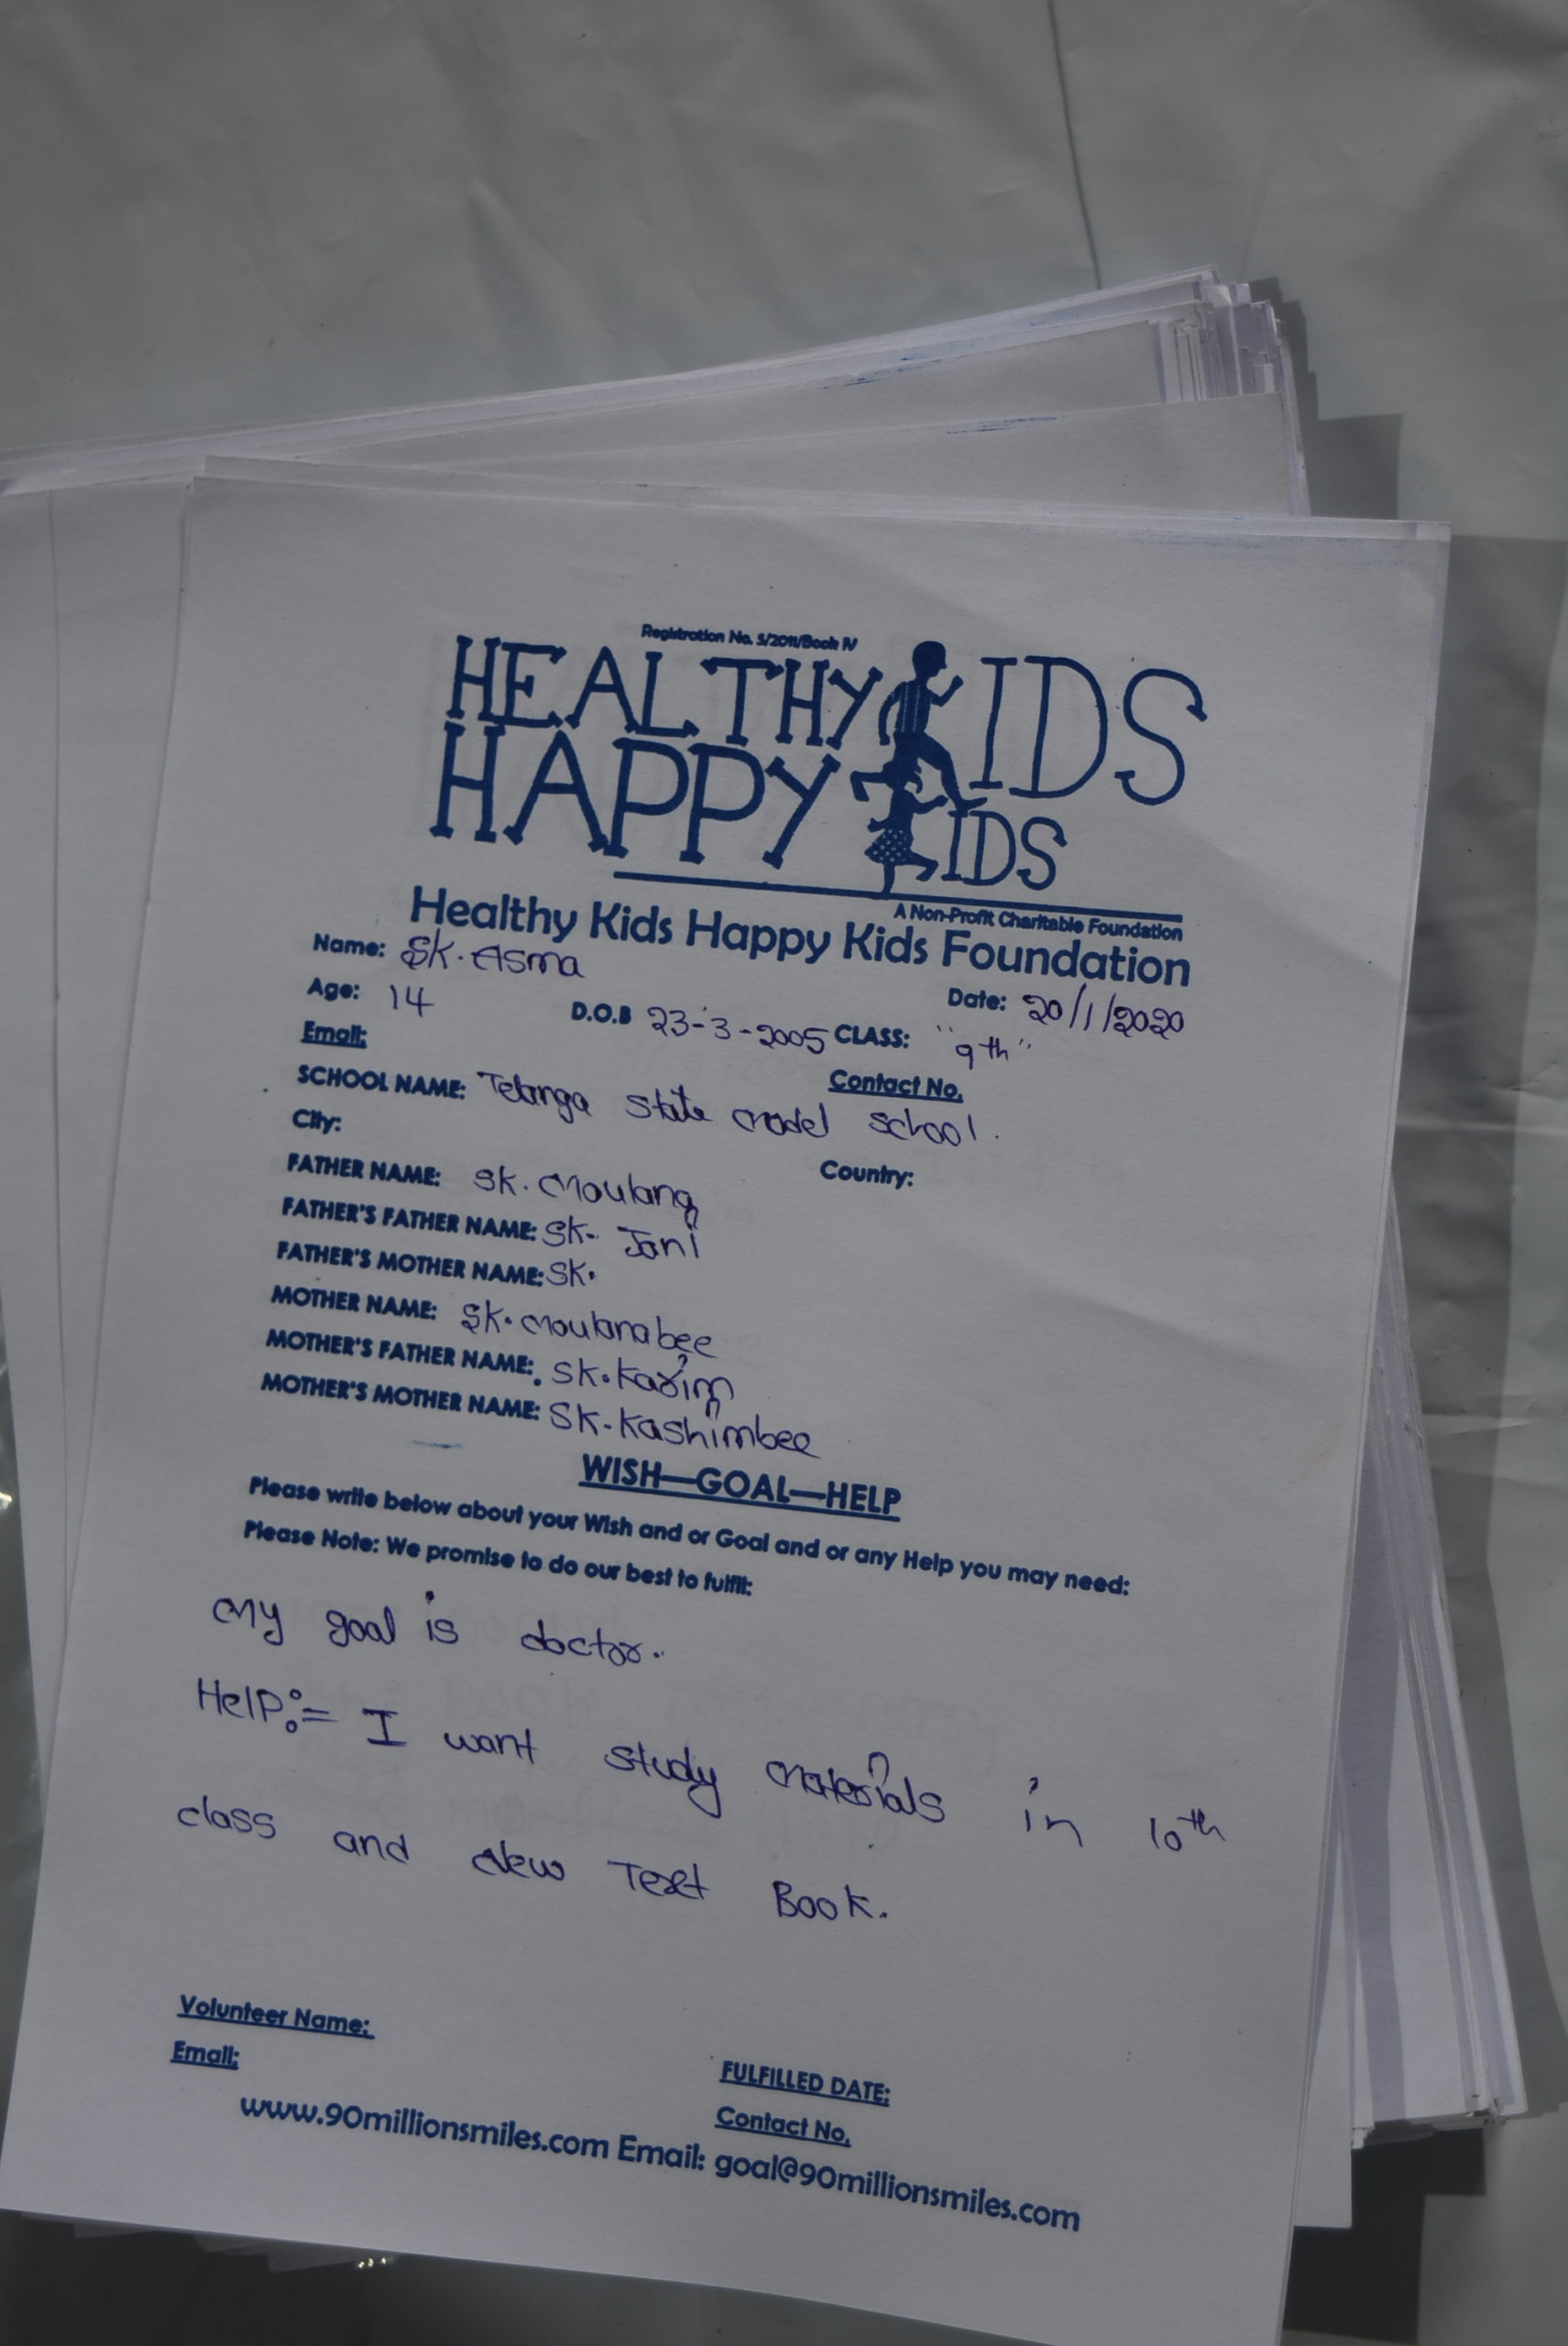 Registration No. 5/2011/Book IV
HEALTHY KIDS
HAPPY KIDS
A Non-Profit Charitable Foundation
Healthy Kids Happy Kids Foundation
Name: SK. Asma
Date: 20/1/2020
Age: 14 D.O.B 23-3-2005 CLASS: "9th"
Email:
Contact No.
SCHOOL NAME: Telanga state model school.
City:
Country:
FATHER NAME: SK. Moulana
FATHER'S FATHER NAME: SK. Jani
FATHER'S MOTHER NAME: SK.
MOTHER NAME: SK. Moulanabee
MOTHER'S FATHER NAME: SK. Karim
MOTHER'S MOTHER NAME: SK. Kashimbee
WISH—GOAL—HELP
Please write below about your Wish and or Goal and or any Help you may need:
Please Note: We promise to do our best to fulfil:
My goal is doctor.
Help:= I want study materials in 10th
class and New Text Book.
Volunteer Name:
FULFILLED DATE:
Email:
Contact No.
www.90millionsmiles.com Email: goal@90millionsmiles.com